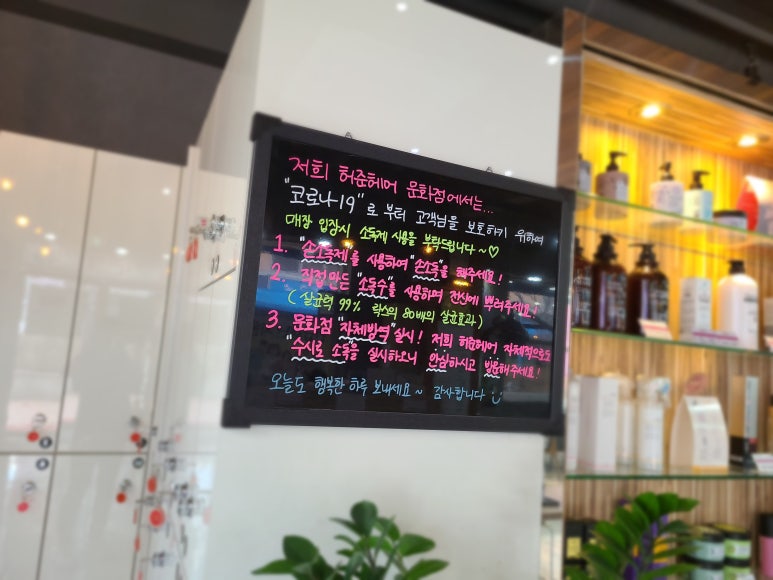 저희 허준헤어 문화점에서는...
"코로나19"로 부터 고객님을 보호하기 위하여
매장 입장시 소독제 사용을 부탁드립니다~♡
1. "손소독제"를 사용하여 "손소독"을 해주세요!
2. 직접만든 "소독수"를 사용하며 전신에 뿌려주세요!
(살균력 99% 락스의 80배의 살균효과)
3. 문화점 "자체방역"실시! 저희 허준헤어 자체적으로도
"수시로 소독을 실시하오니 안심하시고 방문해주세요!
오늘도 행복한 하루 보내세요~ 감사합니다